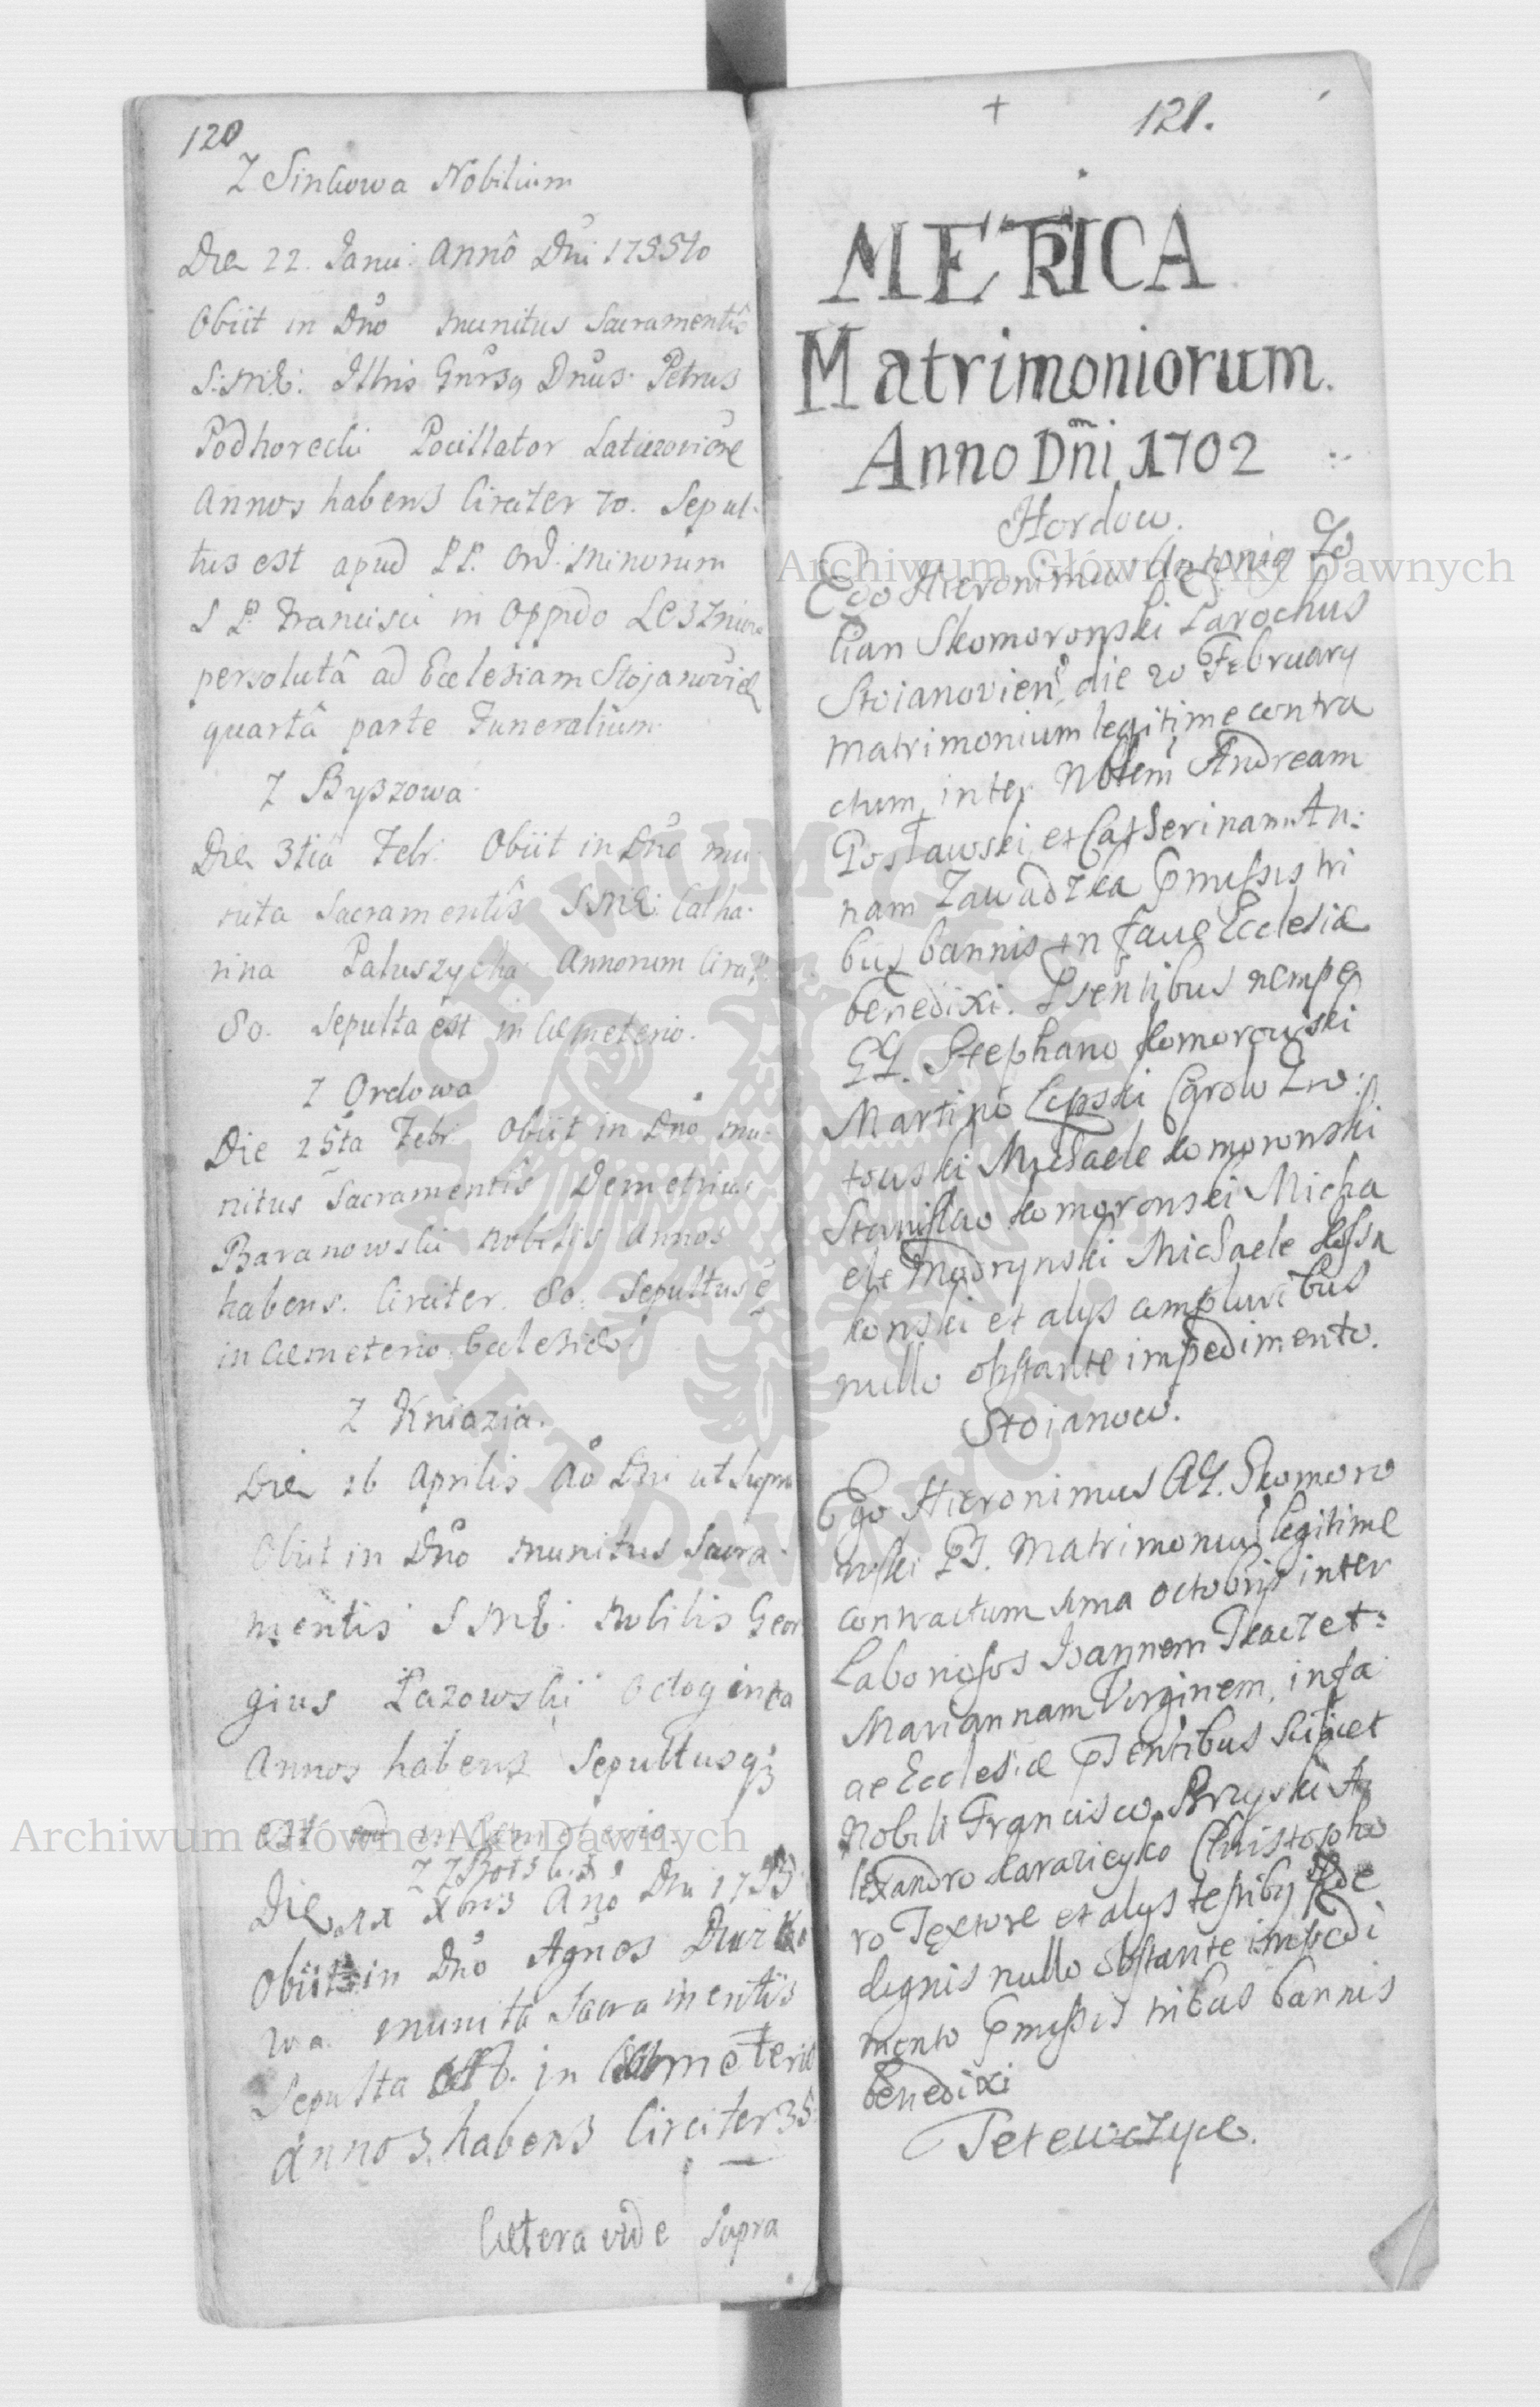 120
Z Sinkowa Nobilium
Die 22. Janu: Anno Dni 1755to
Obiit in Dno munitus Sacramentis
S:M:E: Illris Gnrsq Dnus Petrus
Podhorecki Pocillator
Annos habens Circiter 70. Sepul-
tus est apud P.P. Ord: Minorum
S P. Francisci in Oppido Leszniow
persolutâ ad Ecclesiam Stojanovien
quartâ parte Funeralium
Z Byszowa
Die 3tia Febr: Obiit in Dno mu-
nita Sacramentis S M E: Catha-
rina Paluszycha Annorum Circit
80. Sepulta est in Cæmeterio.
Z Ordowa
Die 25ta Febr: Obiit in Dno mu-
nitus Sacramentis Demetrius
Baranowski Nobilis Annos
habens. Circiter 80. Sepultus e
in Cæmeterio Ecclesiæ
Z Kniazia.
Die 26 Aprilis Ao Dni ut supra
Obiit in Dno munitus Sacra-
mentis S M E: Nobilis Geor
gius Lazowski Octoginta
Annos habens Sepultusq;
est in Cemeterio.
Die Xbris Ano Dni 1753
Obiit in Dno Agnes
wa munita Sacramentis
Sepulta est. in Cæmeterio
Annos habens Circiter 35
Cætera vide supra
+ 121.
METRICA
Matrimoniorum.
Anno Dñi 1702
Hordow.
Ego Hieronimus Antonig Ze
lian Skomorowski Parochus
Stoianovien, die 20 February
Matrimonium legitime contra
ctum, inter Nblem Andream
Postawski, et Catherinam An:
nam Zawadzka pmissis tri
bus bannis in facie Ecclesiæ
benedixi. Psentibus nempe
GG. Stephano Komorowski
Martino Lipski Carolo Zro:
towski Michaele Komorowski
Stanislao Komorowski Micha
ele Modrynski Michaele Kossa
kowski et alys compluribus
nullo obstante impedimento.
Stoianow.
Ego Hieronimus AZ. Skomoro
wski PS. Matrimoniu legitime
contractum 1ma Octobris inter
Laboriosos Joannem Tkacz et:
Mariannam Virginem, in fa
ae Ecclesiæ psentibus scilicet
Nobili Francisco Brzyski A
lexandro Karazieyko Christopho
ro Textore et alys testiby fide
dignis nullo obstante impedi
mento pmissis tribus bannis
benedixi
Tetewczyce.
Archiwum Główne Akt Dawnych
Archiwum Główne Akt Dawnych
ARCHIWUM GŁÓWNE AKT DAWNYCH